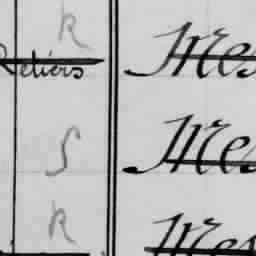 R
Retiers Mes
S Mes
R
Mes